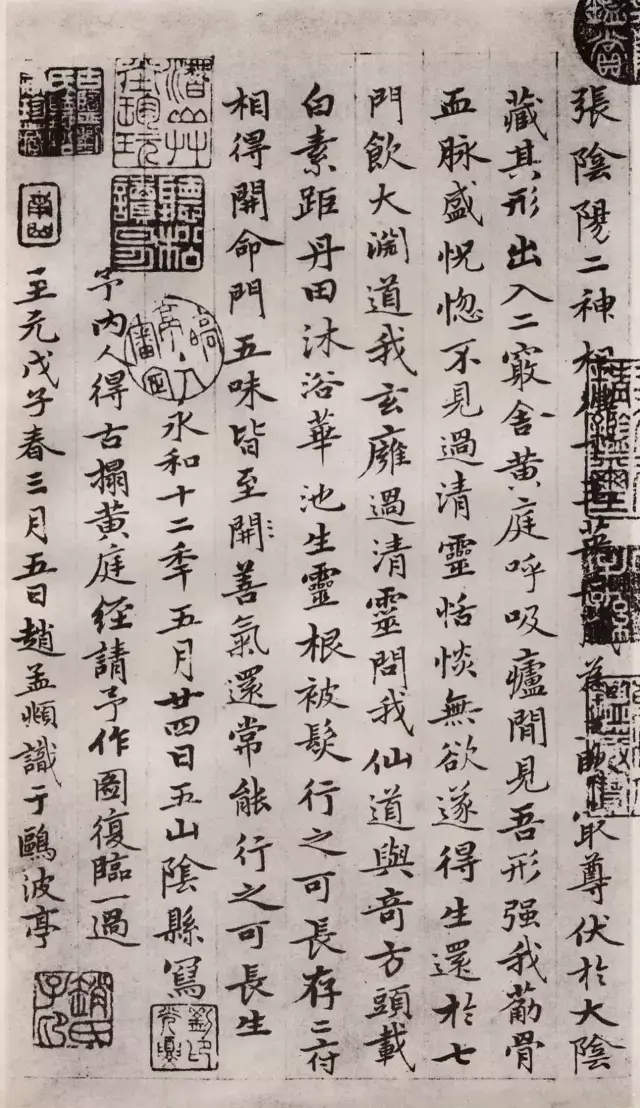 張陰陽二神相 尊伏於大陰
藏其形出入二竅舍黃庭呼吸廬間見吾形强我筋骨
血脉盛怳惚不見過清靈恬惔無欲遂得生還於七
門飲大淵道我玄廱過清靈問我仙道與奇方頭載
白素距丹田沐浴華池生靈根被髮行之可長存二府
相得開命門五味皆至開善氣還常能行之可長生
永和十二年五月廿四日五山陰縣寫
予内人得古搨黃庭經請予作圖復臨一過
至元戊子春三月五日趙孟頫識于鷗波亭
趙氏子昂